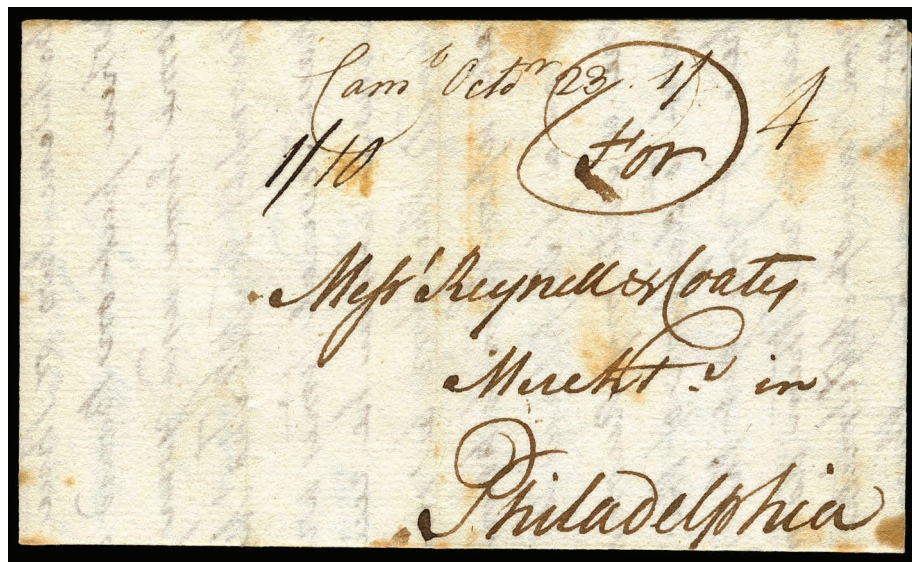 Cam.b Octobr 23. 1/
4
1/10
For
Messrs Reynell & Coates
Merchts in
Philadelphia